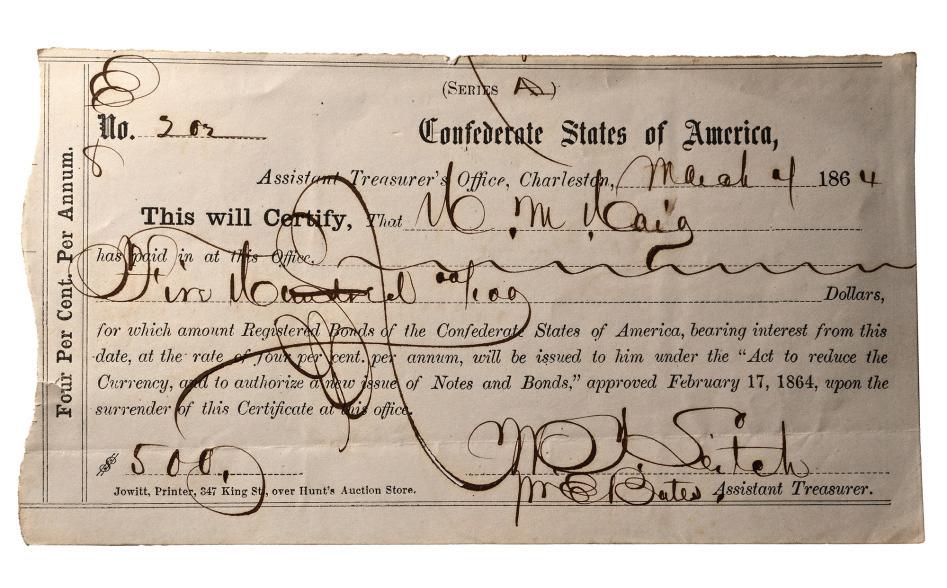 (SERIES A)
No. 202
Confederate States of America,
Assistant Treasurer's Office, Charleston, March 4 1864
This will Certify, That
has paid in at this Office,
Five Hundred 00/100 Dollars,
for which amount Registered Bonds of the Confederate States of America, bearing interest from this
date, at the rate of four per cent. per annum, will be issued to him under the “Act to reduce the
Currency, and to authorize a new issue of Notes and Bonds,” approved February 17, 1864, upon the
surrender of this Certificate at this office.
$ 500.
Bates, Assistant Treasurer.
Jowitt, Printer, 347 King St., over Hunt's Auction Store.
Four Per Cent. Per Annum.